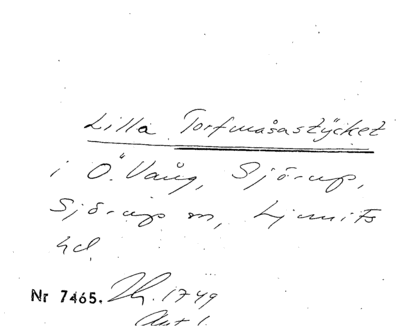 Lilla Torfmåsastÿcket
i Ö. Vång, Sjörup,
Sjörup sn, Ljunits
hd.
Nr 7465. 1749
Akt 1.